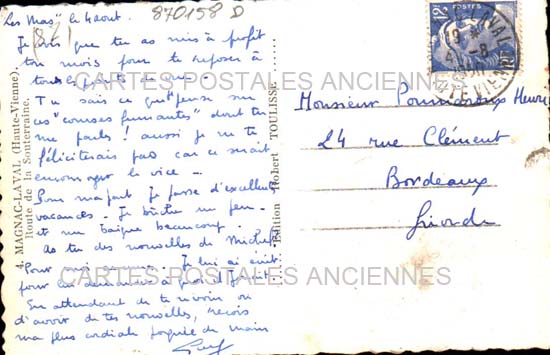 Les Mas le 4 aout.
870158 D
Je vois que tu as mis à profit
ton mois pour te reposer à
tous les points de vue.
Tu sais ce que je pense sur
ces "courses fumantes" dont tu
me parles ! aussi je ne te
féliciterais pas car ce serait
encourager le vice –
Pour ma part je passe d'excellentes
vacances. Je bûche un peu
et me baigne beaucoup.
As tu des nouvelles de Michel ?
Pour Je lui ai écrit
pour lui demander
En attendant de te revoir ou
d'avoir de tes nouvelles, reçois
ma plus cordiale poignée de main
Guy
4. MAGNAC-LAVAL (Haute-Vienne).
Route de la Souterraine.
Edition Robert TOULISSE
POSTES
Monsieur Henri
24 rue Clément
Bordeaux
Gironde
CARTES POSTALES ANCIENNES
CARTES POSTALES ANCIENNES